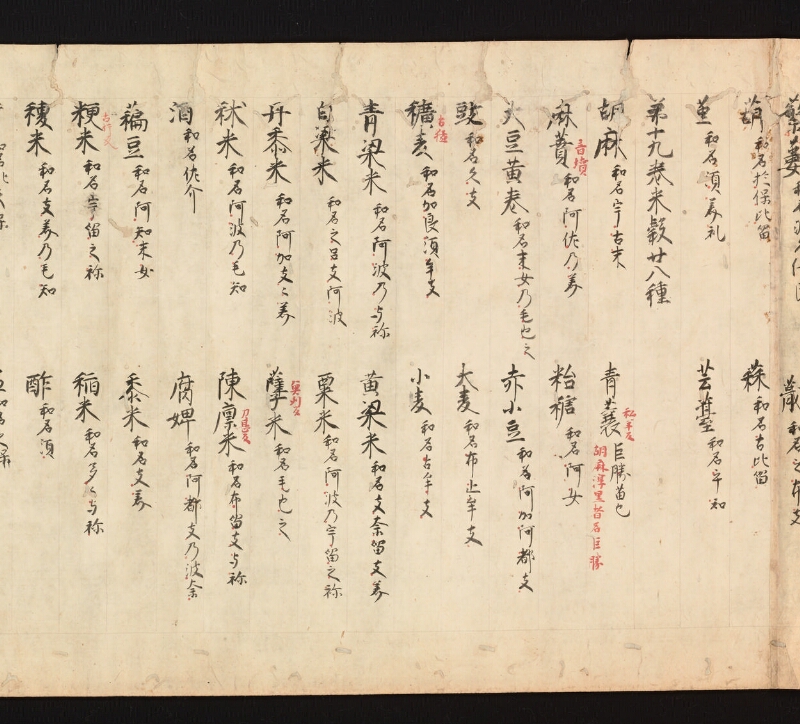 葫 和名於保比留 蒜 和名古比留
菫 和名須美礼 芸薹 和名乎知
第十九巻米穀廿八種
胡麻 和名宇古末 青蘘 私羊反 巨勝苗也 胡麻淳黒者名巨勝
麻蕡 吾墳 和名阿佐乃美 飴糖 和名阿女
大豆黄巻 和名末女乃毛也之 赤小豆 和名阿加阿都支
豉 和名久支 大麦 和名布止牟支
穬麦 古猛 和名加良須牟支 小麦 和名古牟支
青粱米 和名阿波乃与祢 黄粱米 和名支奈留支美
白粱米 和名之呂支阿波 粟米 和名阿波乃宇留之祢
丹黍米 和名阿加支々美 蘖米 和名毛也之
秫米 和名阿波乃毛知 陳廩米 和名布留支与祢
酒 和名佐介 腐婢 和名阿都支乃波奈
藊豆 和名阿知末女 黍米 和名支美
粳米 和名宇留之祢 稲米 和名多々与祢
稷米 和名支美乃毛知 酢 和名須